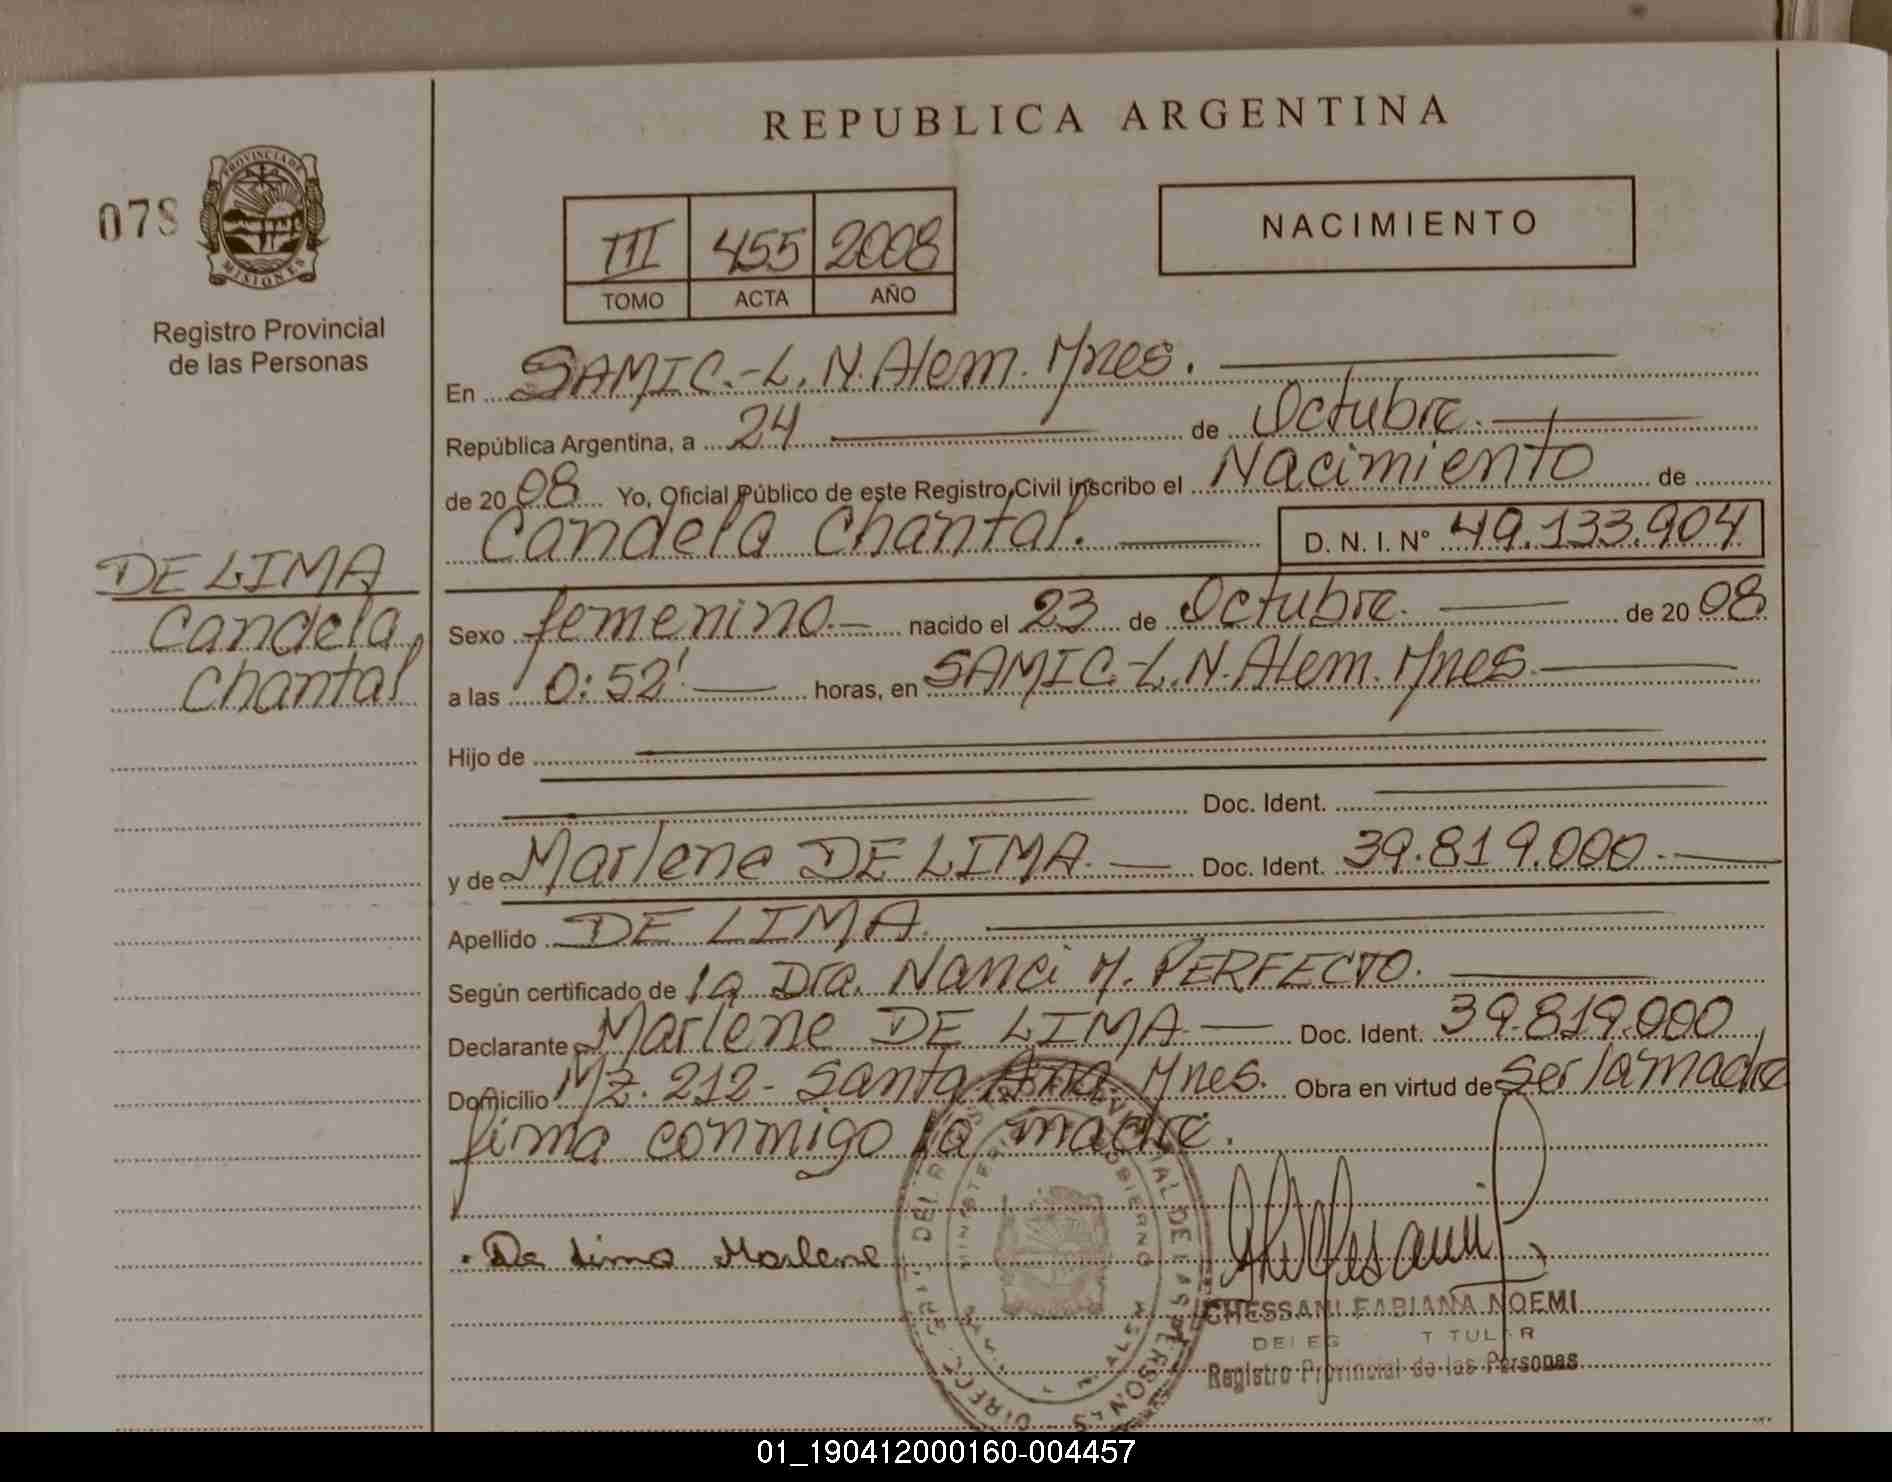 REPUBLICA ARGENTINA
078
PROVINCIA DE
MISIONES
Registro Provincial
de las Personas
III 455 2008
TOMO ACTA AÑO
NACIMIENTO
En SAMIC.-L.N.Alem. Mnes.
República Argentina, a 24 de Octubre.
de 2008 Yo, Oficial Público de este Registro Civil inscribo el Nacimiento de
Candela Chantal. D. N. I. Nº 49.133.904
DE LIMA
Candela
Chantal
Sexo femenino.- nacido el 23 de Octubre. de 2008
a las 0:52' horas, en SAMIC-L.N.Alem. Mnes
Hijo de
Doc. Ident.
y de Marlene DE LIMA. Doc. Ident. 39.819.000.
Apellido DE LIMA.
Según certificado de la Dra. Nanci M. PERFECTO.
Declarante Marlene DE LIMA Doc. Ident. 39.819.000,
Domicilio Mz. 212- Santa Ana. Mnes. Obra en virtud de Ser la madre
firma conmigo la madre.
De Lima Marlene
CHESSANI FABIANA NOEMI
DELEG T TULAR
Registro Provincial de las Personas
01_190412000160-004457